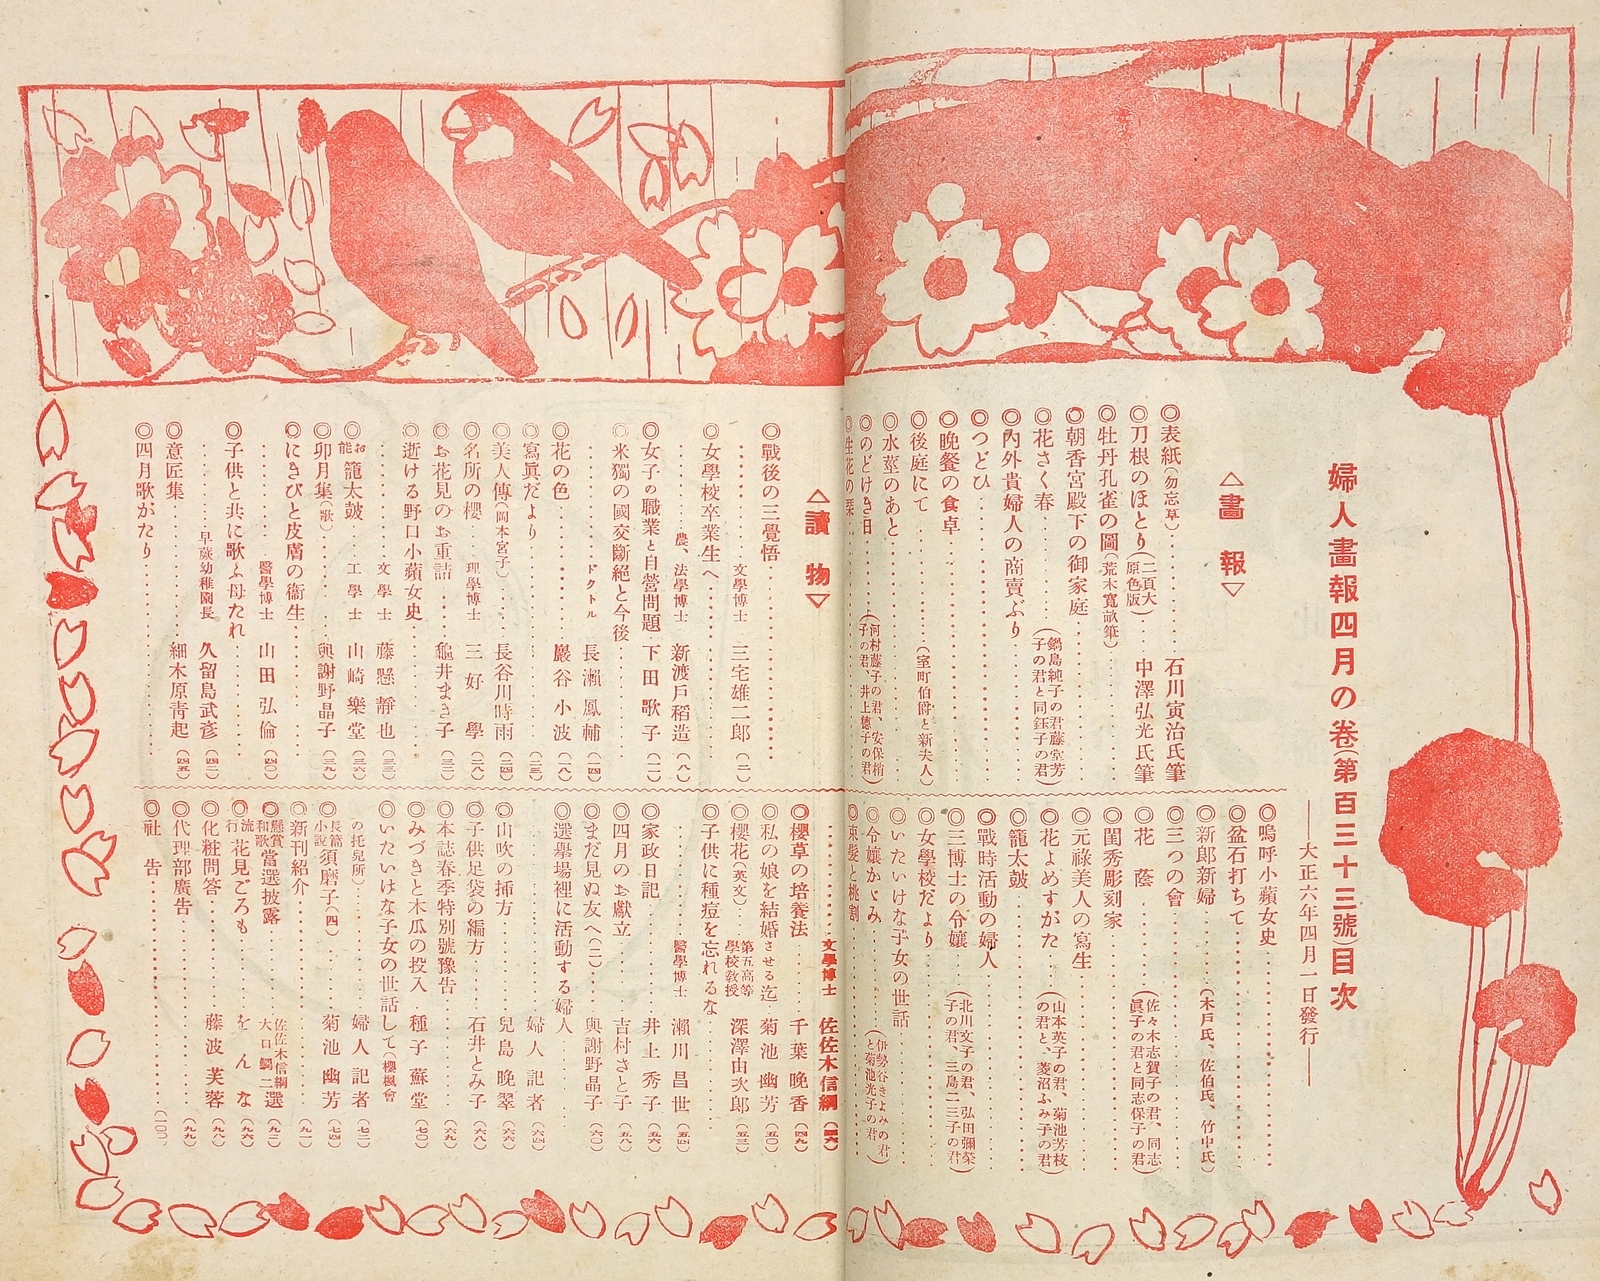 婦人畫報四月の卷(第百三十三號)目次
―大正六年四月一日發行―
△畫報▽
◎表紙(勿忘草)……石川寅治氏筆
◎刀根のほとり(二頁大原色版)……中澤弘光氏筆
◎牡丹孔雀の圖(荒木寬畝筆)
◎朝香宮殿下の御家庭
◎花さく春……(鍋島純子の君藤堂芳子の君と同鈺子の君)
◎內外貴婦人の商賣ぶり
◎つどひ
◎晩餐の食卓
◎後庭にて……(室町伯爵と新夫人)
◎水莖のあと
◎のどけき日……(河村藤子の君、安保梢子の君、井上德子の君)
◎生花の栞
◎嗚呼小蘋女史
◎盆石打ちて
◎新郎新婦……(木戸氏、佐伯氏、竹中氏)
◎三つの會
◎花蔭……(佐々木志賀子の君、同志眞子の君と同志保子の君)
◎閨秀彫刻家
◎元祿美人の寫生
◎花よめすがた……(山本英子の君、菊池芳枝の君と、菱沼ふみ子の君)
◎籠太鼓
◎戰時活動の婦人
◎三博士の令孃……(北川文子の君、弘田彌榮子の君、三島二三子の君)
◎女學校だより
◎いたいけな子女の世話
◎令孃かゞみ……(伊勢谷きよみの君と菊池光子の君)
◎束髮と桃割
△讀物▽
◎戰後の三覺悟
……文學博士 三宅雄二郎(二)
◎女學校卒業生へ
……農、法學博士 新渡戸稻造(八)
◎女子の職業と自營問題 下田歌子(一一)
◎米獨の國交斷絕と今後
……ドクトル 長瀨鳳輔(一四)
◎花の色……巖谷小波(一八)
◎寫眞だより……(二三)
◎美人傳(岡本宮子)……長谷川時雨(二四)
◎名所の櫻……理學博士 三好學(二八)
◎お花見のお重詰……龜井まき子(三二)
◎逝ける野口小蘋女史
……文學士 藤懸靜也(三三)
◎お能籠太鼓……工學士 山崎樂堂(三六)
◎卯月集(歌)……與謝野晶子(三九)
◎にきびと皮膚の衞生
……醫學博士 山田弘倫(四〇)
◎子供と共に歌ふ母たれ
……早蕨幼稚園長 久留島武彥(四二)
◎意匠集……細木原靑起(四五)
◎四月歌がたり
……文學博士 佐佐木信綱(四六)
◎櫻草の培養法……千葉晩香(四九)
◎私の娘を結婚させる迄 菊池幽芳(五〇)
◎櫻花(英文)……第五高等學校敎授 深澤由次郎(五三)
◎子供に種痘を忘れるな
……醫學博士 瀨川昌世(五四)
◎家政日記……井上秀子(五六)
◎四月のお獻立……吉村さと子(五八)
◎まだ見ぬ友へ(二)……與謝野晶子(六〇)
◎選擧場裡に活動する婦人
……婦人記者(六四)
◎山吹の揷方……兒島晩翠(六六)
◎子供足袋の編方……石井とみ子(六八)
◎本誌春季特別號豫告……(六九)
◎みづきと木瓜の投入 種子蘇堂(七〇)
◎いたいけな子女の世話して(櫻楓會の托兒所)……婦人記者(七二)
◎長篇小說須磨子(四)……菊池幽芳(七四)
◎新刊紹介……(九一)
◎懸賞和歌當選披露……佐佐木信綱 大口鯛二選(九二)
◎流行花見ごろも……をんな(九六)
◎化粧問答……藤波芙蓉(九八)
◎代理部廣告……(九九)
◎社告……(一〇〇)